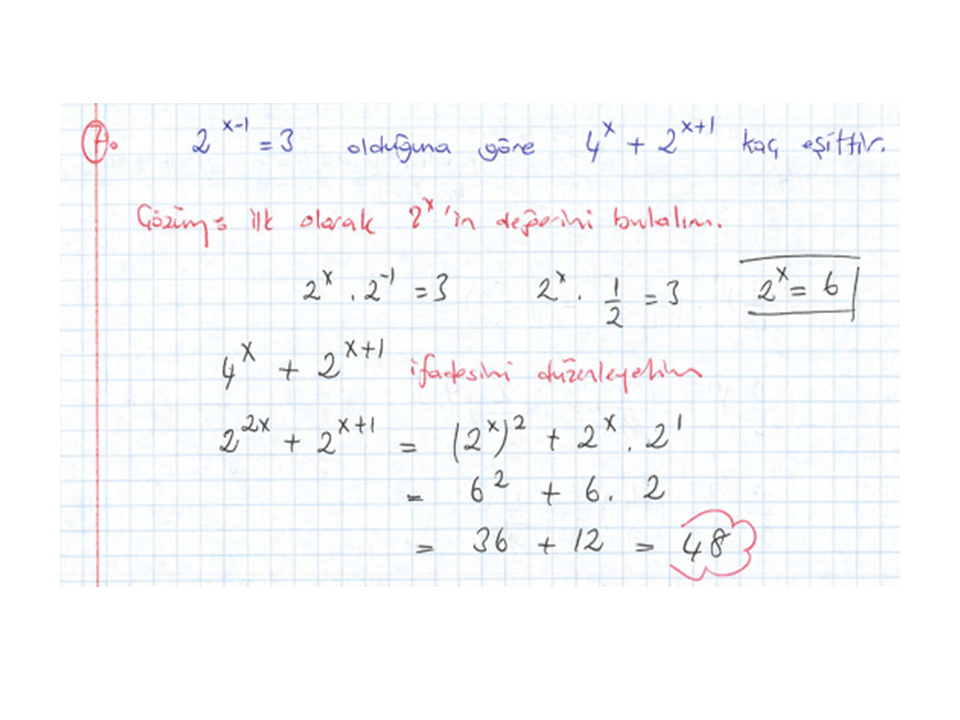 7. 2^(x-1) = 3 olduğuna göre 4^x + 2^(x+1) kaç eşittir.
Çözüm: ilk olarak 2^x'in değerini bulalım.
2^x . 2^-1 = 3 2^x . 1/2 = 3 2^x = 6
4^x + 2^(x+1) ifadesini düzenleyelim
2^(2x) + 2^(x+1) = (2^x)^2 + 2^x . 2^1
= 6^2 + 6 . 2
= 36 + 12 = 48